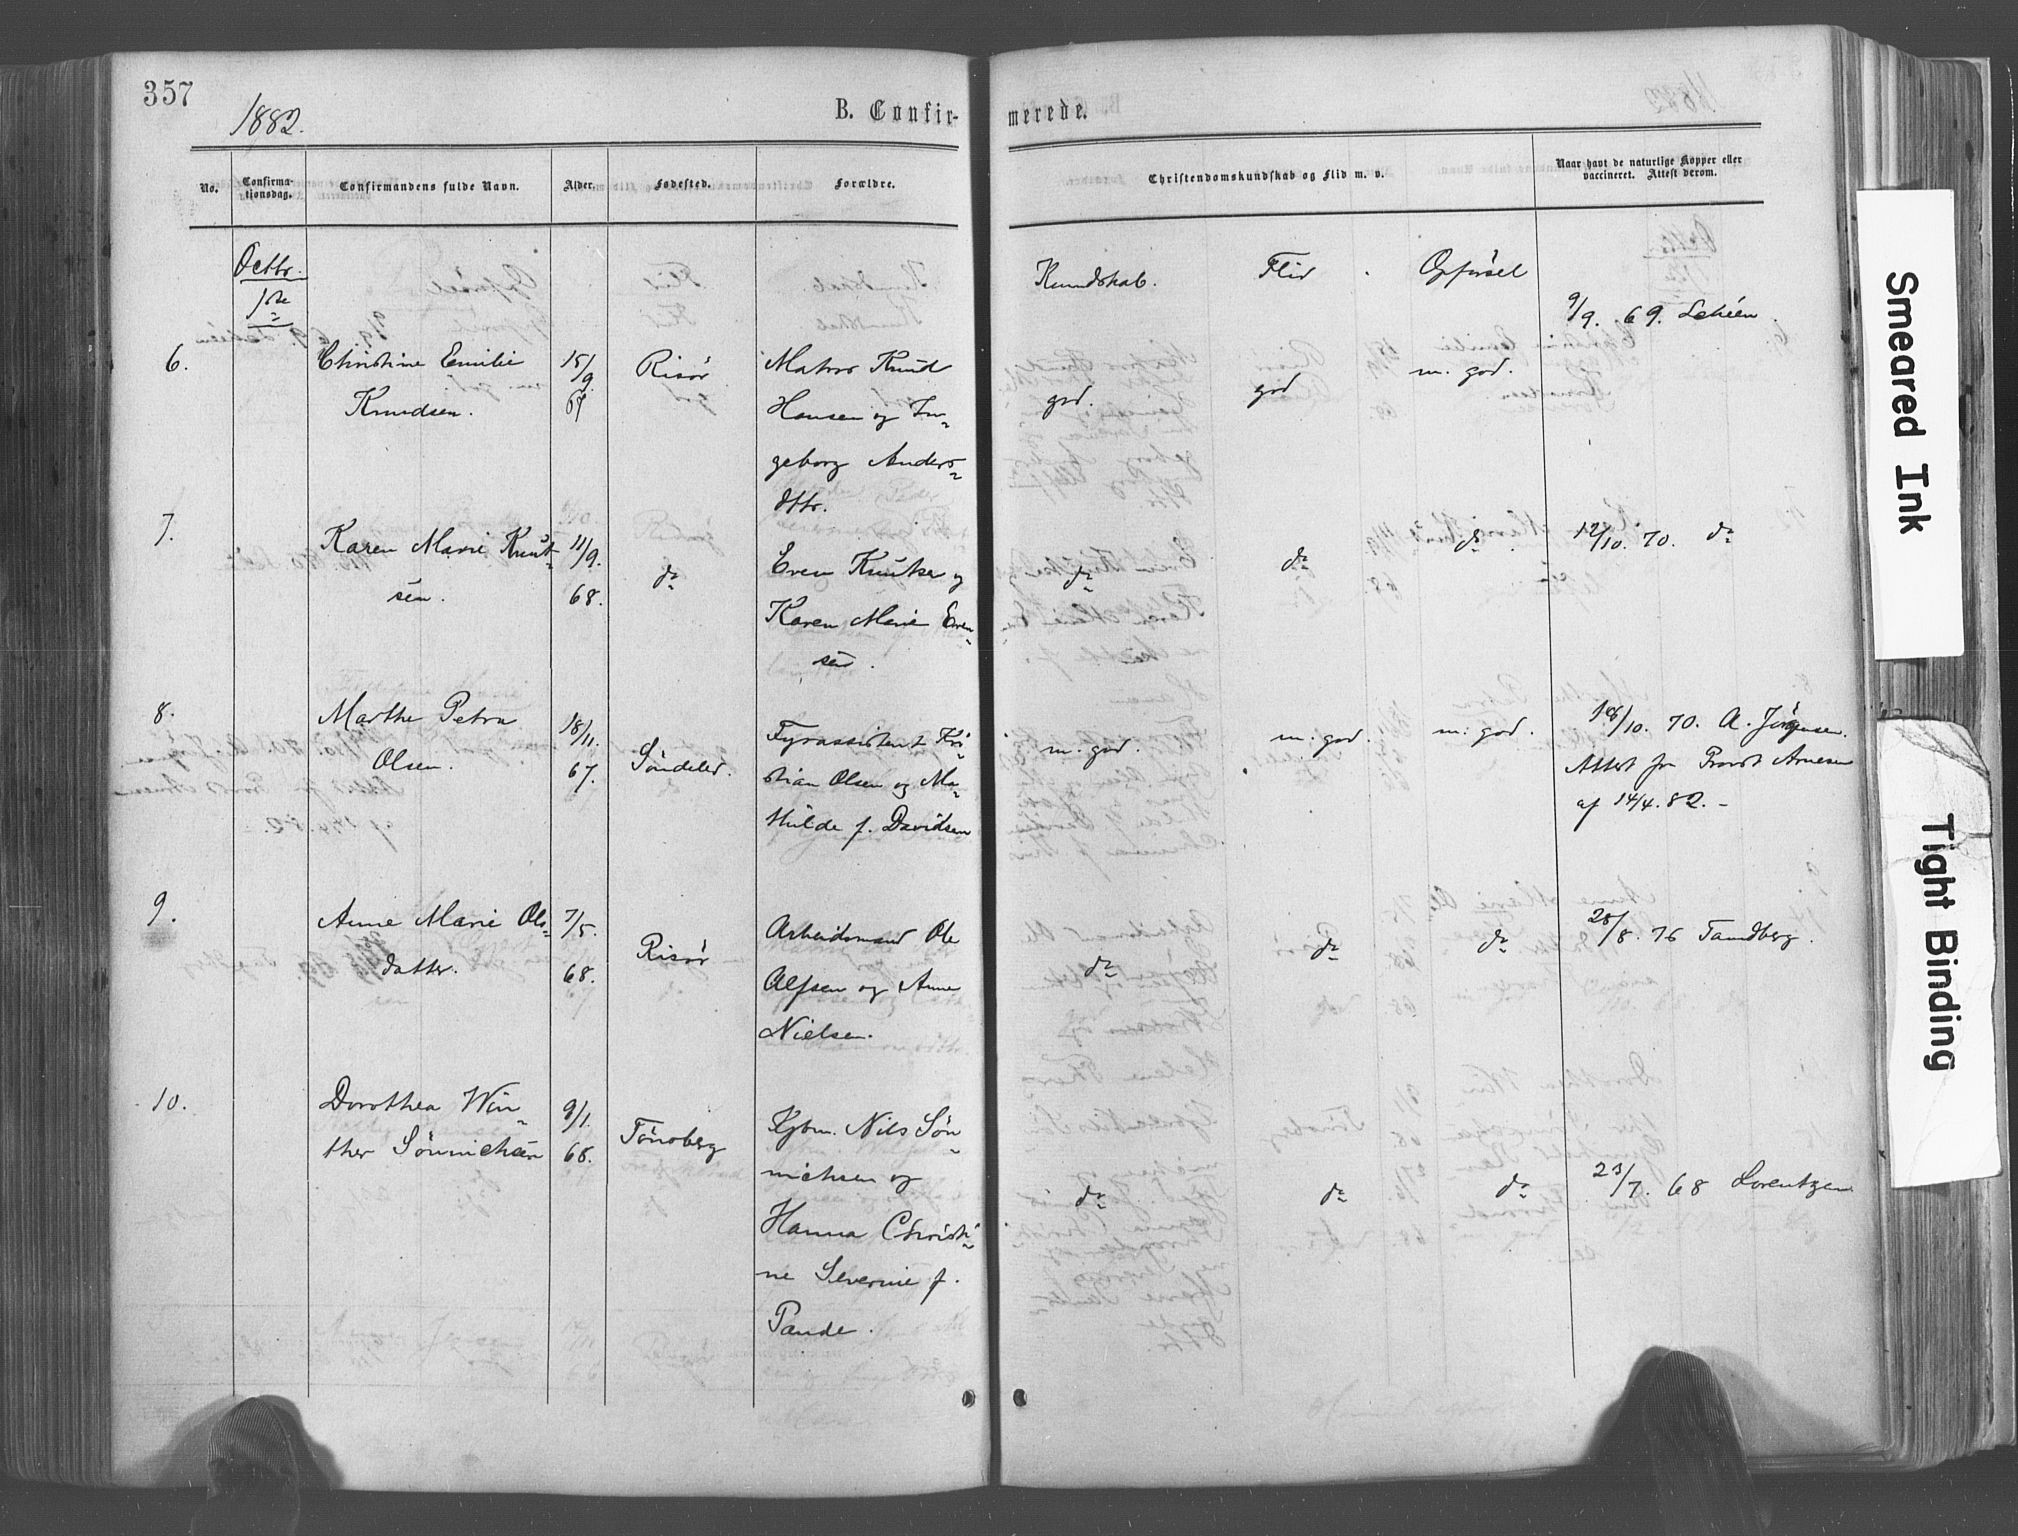 357
1882.
B. Confir-
merede.
No.
Confirma-
tionsdag.
Confirmandens fulde Navn.
Alder.
Fødested.
Forældre.
Christendomskundskab og Flid m. v.
Naar havt de naturlige Kopper eller
vaccineret. Attest derom.
Octbr.
1ste
Kundskab.
Flid
Opførsel
6.
Christine Emilie
Knudsen.
15/9
67
Risør
Matros Knud
Hansen og In-
geborg Anders-
dttr.
god.
god
m. god.
9/9. 69.
7.
Karen Marie Knut-
sen.
11/9.
68.
do
Even Knutsen og
Karen Marie Even-
sen.
do
do
do
12/10. 70. do
8.
Marthe Petra
Olsen.
18/11.
67.
Søndeled.
Fyrassistent Kri-
stian Olsen og Ma-
thilde f. Davidsen
m. god.
m. god.
m. god.
/10. 70. A. Jørgensen.
Attest fr Provst Arnesen
af 14/4. 82. -
9.
Anne Marie Ols-
datter.
7/5.
68.
Risør
Arbeidsmand Ole
Alfsen og Anne
Nielsen.
do
do
do
28/8. 76 Tandberg.
10.
Dorothea Win-
ther Sönnichsen
9/1.
68.
Tönsberg
Kjbm. Nils Søn-
nichsen og
Hanna Christi-
ne Severine f.
Pande.
do
do
do
23/7. 68 Lorentzen
Smeared Ink
Tight Binding